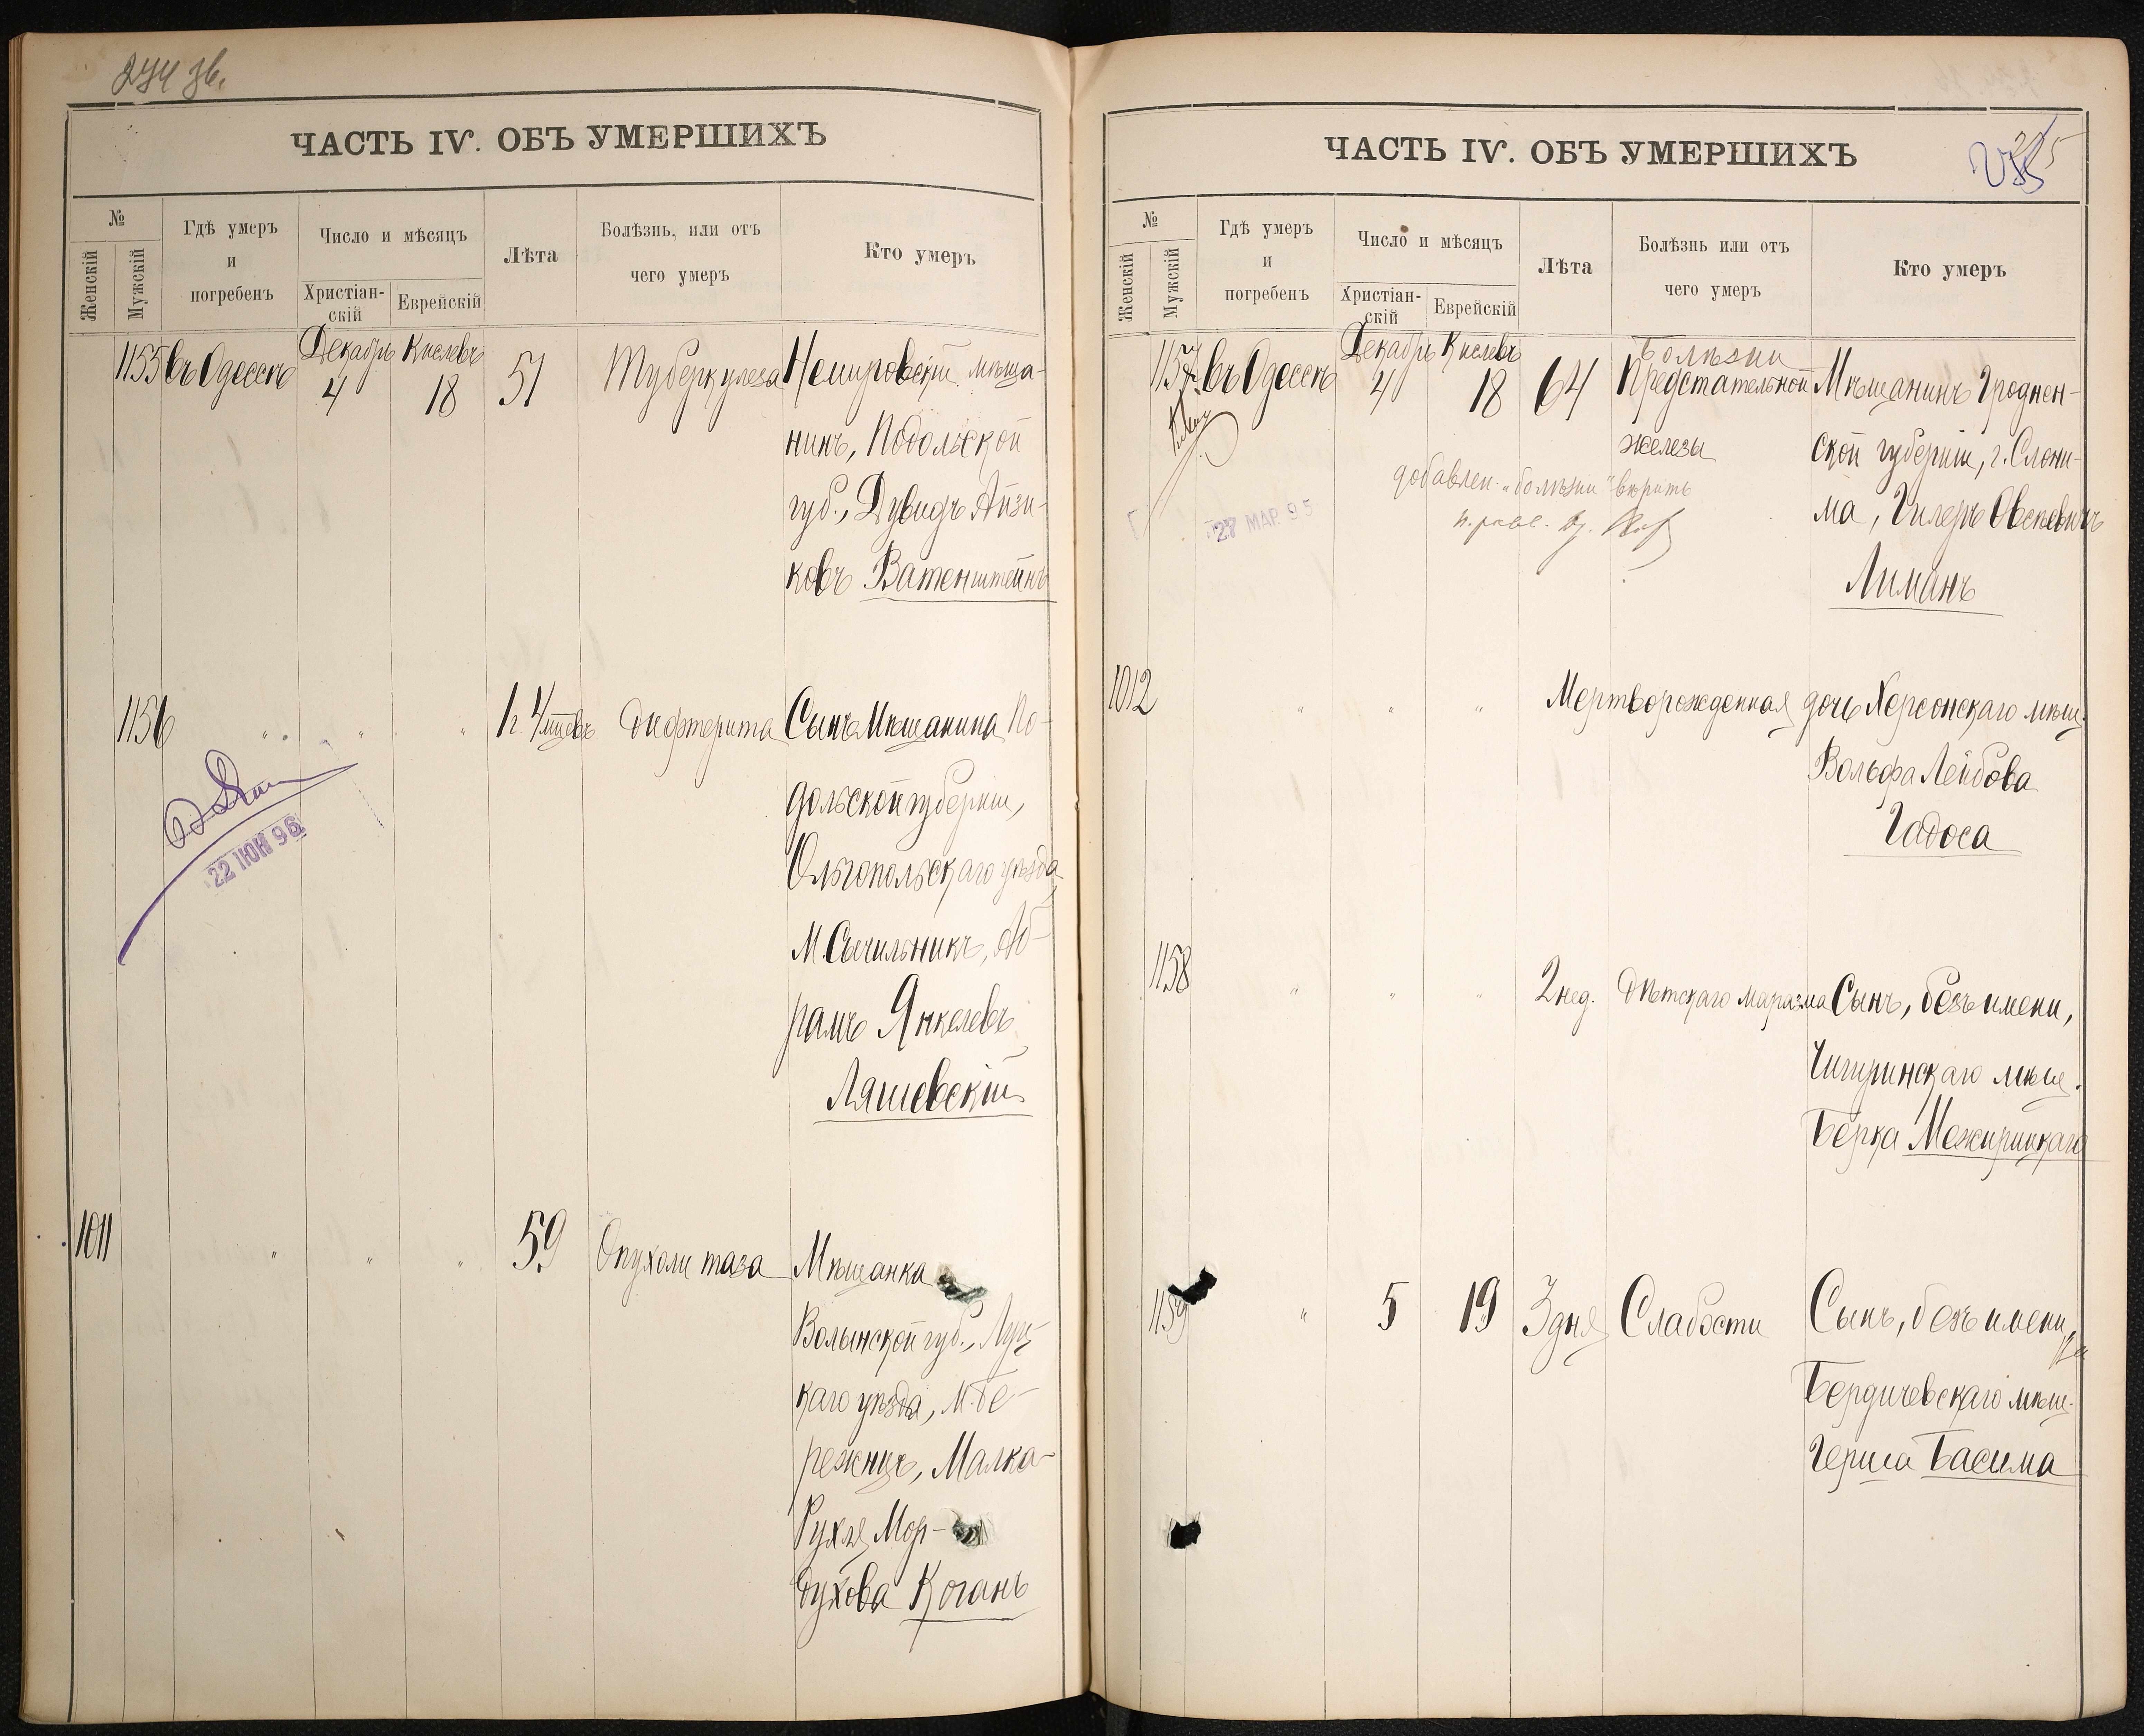 274 зв.
ЧАСТЬ IV. ОБЪ УМЕРШИХЪ
№
Женскій
Мужскій
Гдѣ умеръ
и
погребенъ
Число и мѣсяцъ
Христіан-
скій
Еврейскій
Лѣта
Болѣзнь, или отъ
чего умеръ
Кто умеръ
1155 въ Одессѣ Декабрь 4 Кислевъ 18 51 Туберкулеза Немировскій мѣща-
нинъ, Подольской
губ., Дувидъ Айзи-
ковъ Ватенштейнъ
1156 " " " 1 г. 4 мѣсяцевъ Дифтерита Сынъ Мѣщанина По-
дольской губерніи,
Ольгопольскаго уѣзда
М. Сычильникъ, Аб-
рамъ Янкелевъ
Ляшевскій
22 ІЮН 96
1011 " " " 59 Опухоли таза Мѣщанка
Волынской губ., Луц-
каго уѣзда, М. Бе-
режницъ, Малка-
Рухля Мор-
духова Коганъ
ЧАСТЬ IV. ОБЪ УМЕРШИХЪ
№
Женскій
Мужскій
Гдѣ умеръ
и
погребенъ
Число и мѣсяцъ
Христіан-
скій
Еврейскій
Лѣта
Болѣзнь или отъ
чего умеръ
Кто умеръ
болѣзни
1157 въ Одессѣ Декабрь 4 Кислевъ 18 64 Предстательной Мѣщанинъ Гроднен-
железы ской губерніи, г. Слони-
добавлен. "болѣзни" вѣрить
ма, Гилеръ Овсѣевичъ
27 МАР. 95
Лиманъ
1012 " " " Мертворожденная дочь Херсонскаго мѣщ.
Вольфа Лейбова
Гадоса
1158 " " " 2 нед. Дѣтскаго маразма Сынъ, безъ имени,
Чигиринскаго мѣщ.
Берка Межирицкаго
1159 " 5 19 3 дня Слабости Сынъ, безъ имени,
Бердичевскаго мѣщ.
Герша Басима